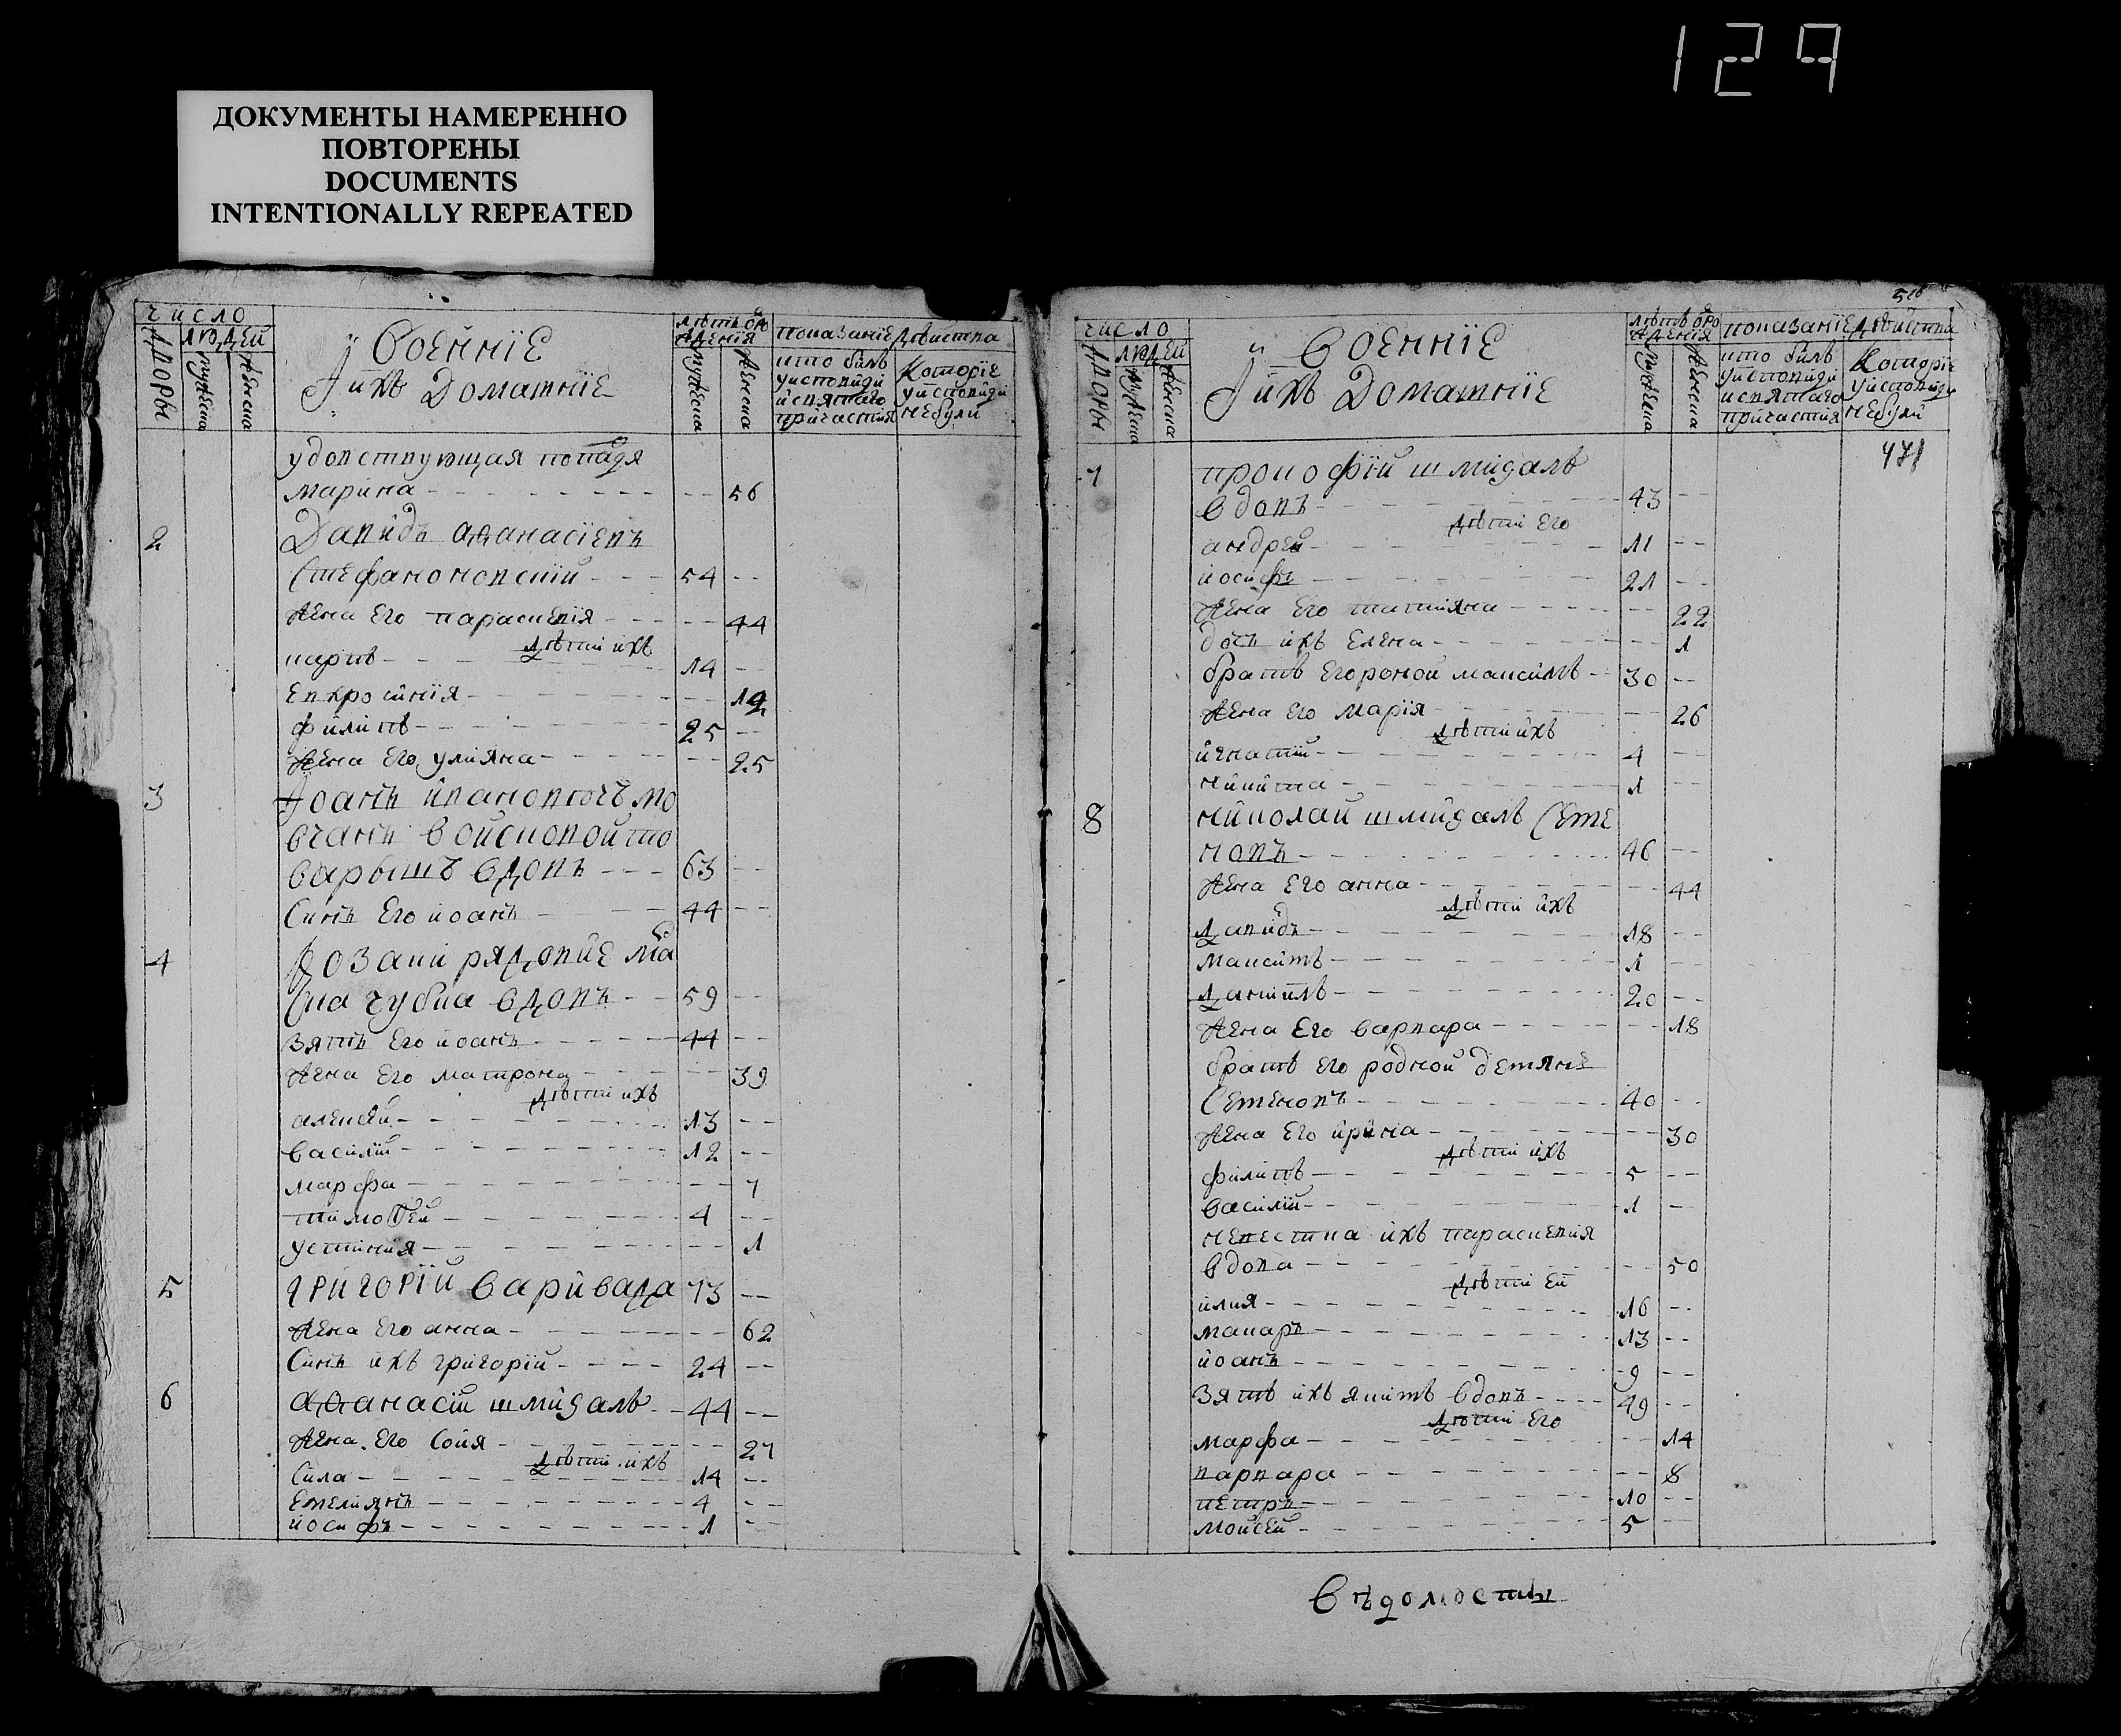 129
ДОКУМЕНТЫ НАМЕРЕННО
ПОВТОРЕНЫ
DOCUMENTS
INTENTIONALLY REPEATED
число
людей
дворы
мужеска
женска
воеинїе
їихъ домашнїе
лѣтъ ѿ рождения
мужеска
женска
показанїе дѣйства
кто былъ уисповѣди исвятаго причастия
которїе уисповѣди небули
удовствующая попадя
марина 56
2 Давидъ аѳанасїевъ
Стефановскїй 54
жена его параскевїя 44
дѣти ихъ
карпъ 14
евхросинїя 12
филипъ 25
жена его улияна 25
3 Їоанъ ивановъ
войсковой то
варышъ вдовъ 63
Синъ его иоанъ 44
4 Козаки рядовие ма
вдовъ 59
зять его иоанъ 44
жена его матрона 39
дѣти ихъ
алексѣй 13
василїй 12
марфа 7
тимофей 4
устиния 1
5 григорїй варивада 73
жена его анна 62
Синъ ихъ григорїй 24
6 аѳанасїй шмигаль 44
жена его София 27
дѣти ихъ
Сила 14
емелиянъ 4
иосифъ 1
число
людей
дворы
мужеска
женска
воеинїе
їихъ домашнїе
лѣтъ ѿ рождения
мужеска
женска
показанїе дѣйства
кто былъ уисповѣди исвятаго причастия
которїе уисповѣди небули
471
7 прокофїй шмигаль
вдовъ 43
дѣти его
андрей 11
иосифъ 21
жена его татияна 22
дочь ихъ елена 1
братъ его родной максимъ 30
жена его марїя 26
дѣти ихъ
игнатїй 4
никита 1
8 николай шмигаль Семе
новъ 46
жена его анна 44
дѣти ихъ
давидъ 18
максимъ 1
данїилъ 20
жена его варвара 18
братъ его родной демянъ
Семеновъ 40
жена его ирина 30
дѣти ихъ
филипъ 5
василїй 1
невестка ихъ параскевия
вдова 50
дѣти ей
илия 16
макаръ 13
иоанъ 9
зять ихъ якимъ вдовъ 49
дѣти его
марфа 14
варвара 8
петръ 10
мойсей 5
вѣдомость